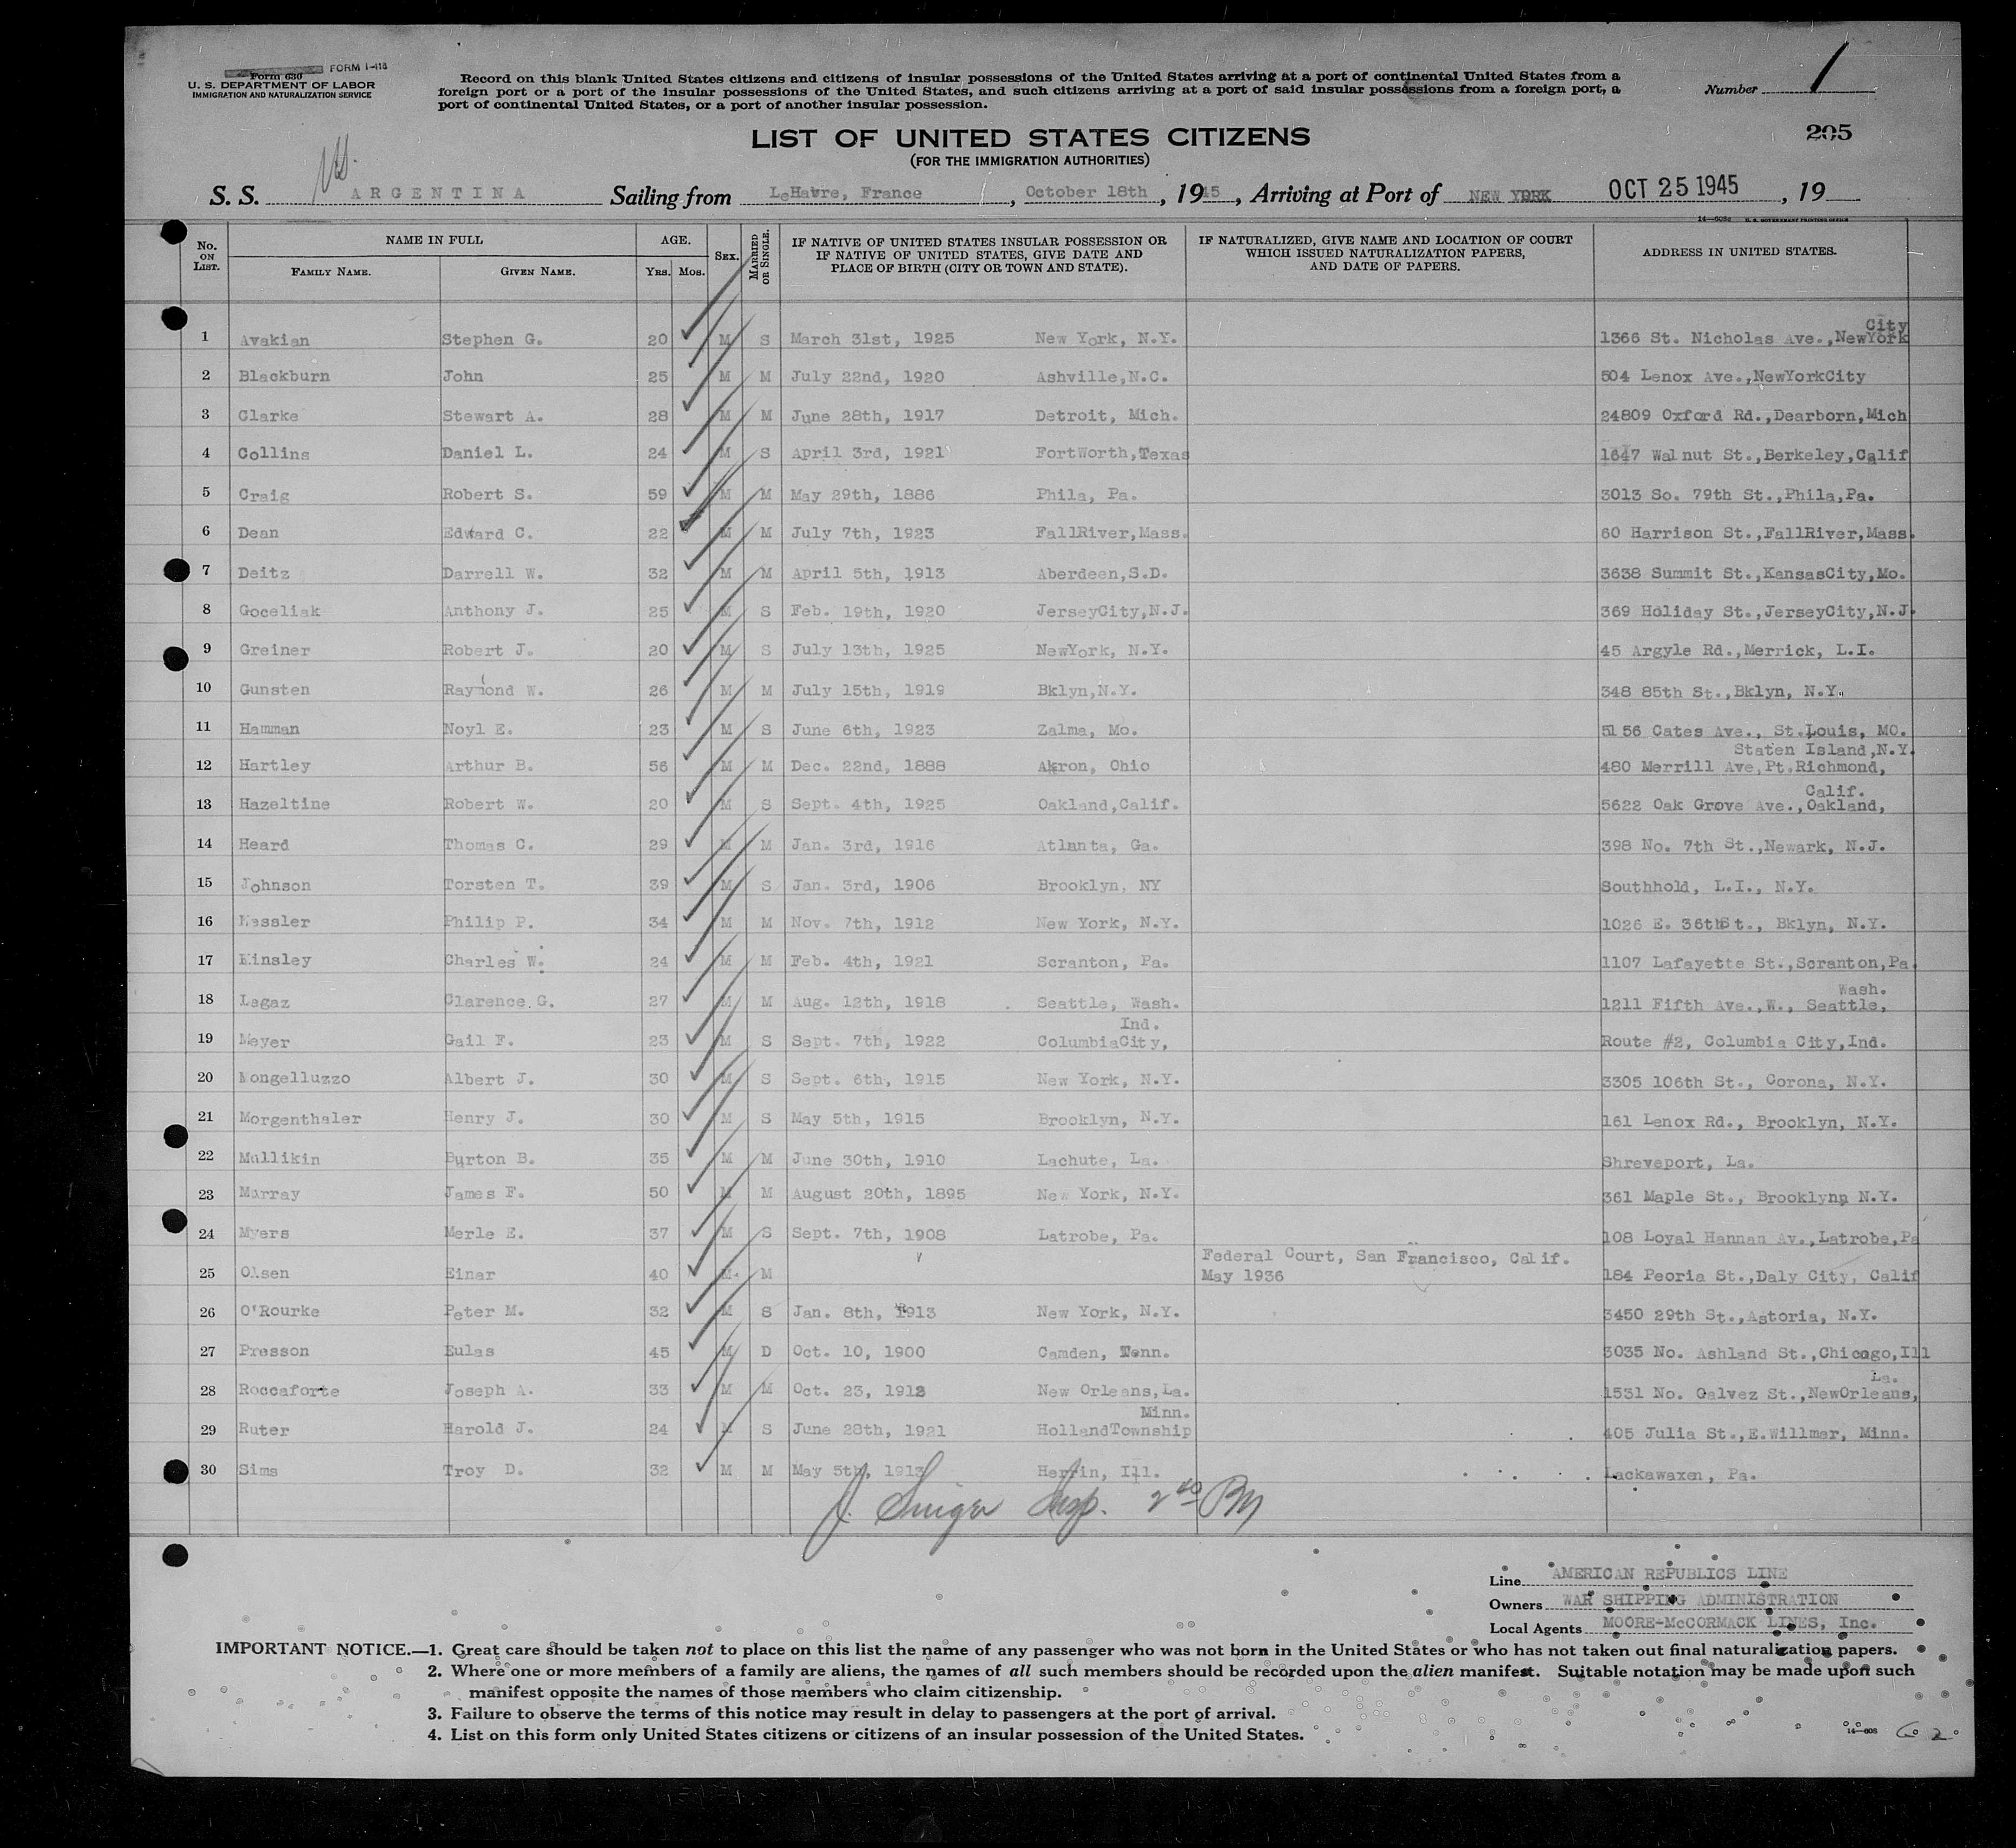 Form 630 FORM I-418
U. S. DEPARTMENT OF LABOR
IMMIGRATION AND NATURALIZATION SERVICE
Record on this blank United States citizens and citizens of insular possessions of the United States arriving at a port of continental United States from a
foreign port or a port of the insular possessions of the United States, and such citizens arriving at a port of said insular possessions from a foreign port, a
port of continental United States, or a port of another insular possession.
Number 1
205
LIST OF UNITED STATES CITIZENS
(FOR THE IMMIGRATION AUTHORITIES)
S. S. ARGENTINA Sailing from LeHavre, France, October 18th, 1945, Arriving at Port of NEW YORK OCT 25 1945, 19
No. ON LIST. NAME IN FULL FAMILY NAME. GIVEN NAME. AGE. YRS. MOS. SEX. MARRIED OR SINGLE. IF NATIVE OF UNITED STATES INSULAR POSSESSION OR IF NATIVE OF UNITED STATES, GIVE DATE AND PLACE OF BIRTH (CITY OR TOWN AND STATE). IF NATURALIZED, GIVE NAME AND LOCATION OF COURT WHICH ISSUED NATURALIZATION PAPERS, AND DATE OF PAPERS. ADDRESS IN UNITED STATES.
1 Avakian Stephen G. 20 M S March 31st, 1925 New York, N.Y. 1366 St. Nicholas Ave.,NewYork City
2 Blackburn John 25 M M July 22nd, 1920 Ashville,N.C. 504 Lenox Ave.,NewYorkCity
3 Clarke Stewart A. 28 M M June 28th, 1917 Detroit, Mich. 24809 Oxford Rd.,Dearborn,Mich
4 Collins Daniel L. 24 M S April 3rd, 1921 FortWorth,Texas 1647 Walnut St.,Berkeley,Calif
5 Craig Robert S. 59 M M May 29th, 1886 Phila, Pa. 3013 So. 79th St.,Phila,Pa.
6 Dean Edward C. 22 M M July 7th, 1923 FallRiver,Mass. 60 Harrison St.,FallRiver,Mass.
7 Deitz Darrell W. 32 M M April 5th, 1913 Aberdeen,S.D. 3638 Summit St.,KansasCity,Mo.
8 Goceliak Anthony J. 25 M S Feb. 19th, 1920 JerseyCity,N.J. 369 Holiday St.,JerseyCity,N.J.
9 Greiner Robert J. 20 M S July 13th, 1925 NewYork, N.Y. 45 Argyle Rd.,Merrick, L.I.
10 Gunsten Raymond W. 26 M M July 15th, 1919 Bklyn,N.Y. 348 85th St.,Bklyn, N.Y.
11 Hamman Noyl E. 23 M S June 6th, 1923 Zalma, Mo. 5156 Cates Ave., St.Louis, MO.
12 Hartley Arthur B. 56 M M Dec. 22nd, 1888 Akron, Ohio 480 Merrill Ave,Pt.Richmond, Staten Island,N.Y.
13 Hazeltine Robert W. 20 M S Sept. 4th, 1925 Oakland,Calif. 5622 Oak Grove Ave.,Oakland, Calif.
14 Heard Thomas C. 29 M M Jan. 3rd, 1916 Atlanta, Ga. 398 No. 7th St.,Newark, N.J.
15 Johnson Torsten T. 39 M S Jan. 3rd, 1906 Brooklyn, NY Southhold, L.I., N.Y.
16 Kessler Philip P. 34 M M Nov. 7th, 1912 New York, N.Y. 1026 E. 36thSt., Bklyn, N.Y.
17 Kinsley Charles W. 24 M M Feb. 4th, 1921 Scranton, Pa. 1107 Lafayette St.,Scranton,Pa.
18 Legaz Clarence G. 27 M M Aug. 12th, 1918 Seattle, Wash. 1211 Fifth Ave.,W., Seattle, Wash.
19 Meyer Gail F. 23 M S Sept. 7th, 1922 ColumbiaCity, Ind. Route #2, Columbia City,Ind.
20 Mongelluzzo Albert J. 30 M S Sept. 6th, 1915 New York, N.Y. 3305 106th St., Corona, N.Y.
21 Morgenthaler Henry J. 30 M S May 5th, 1915 Brooklyn, N.Y. 161 Lenox Rd., Brooklyn, N.Y.
22 Mullikin Burton B. 35 M M June 30th, 1910 Lachute, La. Shreveport, La.
23 Murray James F. 50 M M August 20th, 1895 New York, N.Y. 361 Maple St., Brooklynn N.Y.
24 Myers Merle E. 37 M S Sept. 7th, 1908 Latrobe, Pa. 108 Loyal Hannan Av.,Latrobe,Pa
25 Olsen Einar 40 M M Federal Court, San Francisco, Calif. May 1936 184 Peoria St.,Daly City, Calif
26 O'Rourke Peter M. 32 M S Jan. 8th, 1913 New York, N.Y. 3450 29th St.,Astoria, N.Y.
27 Presson Eulas 45 M D Oct. 10, 1900 Camden, Tenn. 3035 No. Ashland St.,Chicago,Ill
28 Roccaforte Joseph A. 33 M M Oct. 23, 1912 New Orleans,La. 1531 No. Galvez St.,NewOrleans, La.
29 Ruter Harold J. 24 M S June 28th, 1921 HollandTownship Minn. 405 Julia St.,E.Willmar, Minn.
30 Sims Troy D. 32 M M May 5th, 1913 Herrin, Ill. Lackawaxen, Pa.
J. Singer Insp.
Line AMERICAN REPUBLICS LINE
Owners WAR SHIPPING ADMINISTRATION
Local Agents MOORE-McCORMACK LINES, Inc.
IMPORTANT NOTICE.—1. Great care should be taken not to place on this list the name of any passenger who was not born in the United States or who has not taken out final naturalization papers.
2. Where one or more members of a family are aliens, the names of all such members should be recorded upon the alien manifest. Suitable notation may be made upon such
manifest opposite the names of those members who claim citizenship.
3. Failure to observe the terms of this notice may result in delay to passengers at the port of arrival.
4. List on this form only United States citizens or citizens of an insular possession of the United States.